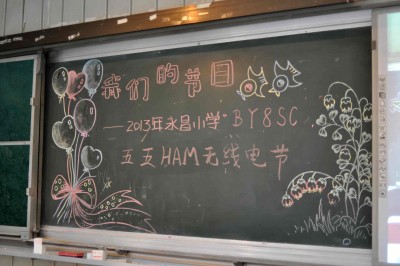 我们的节目
——2013年永昌小学"BY8SC
五五HAM无线电节